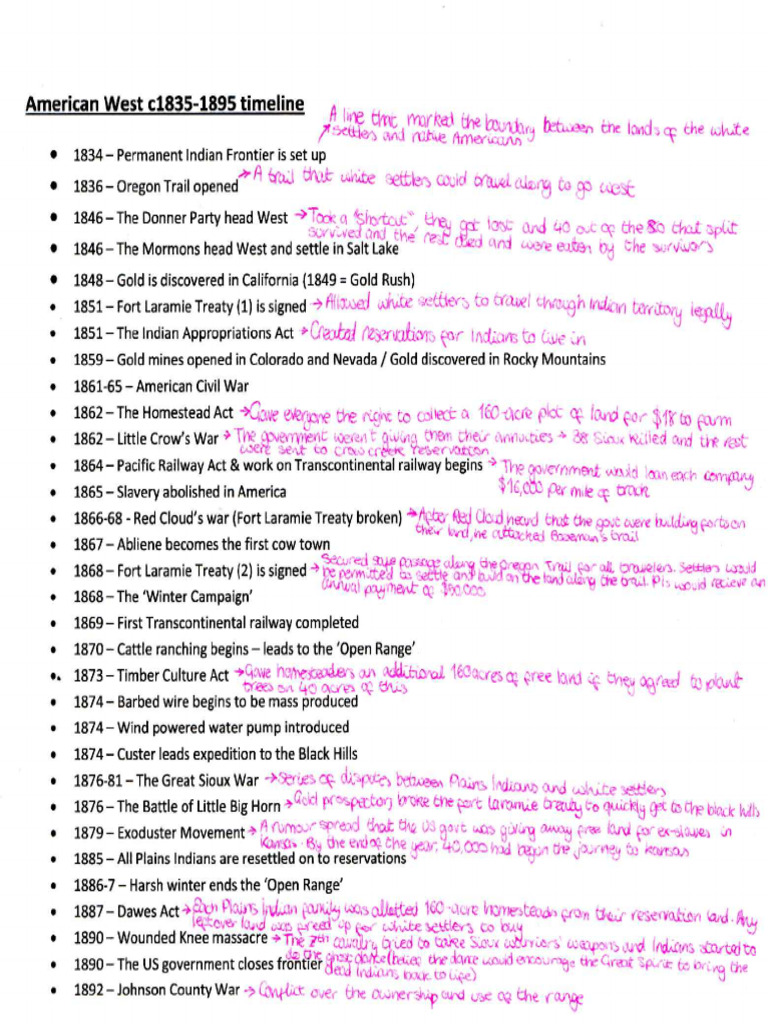 American West c1835-1895 timeline
A line that marked the boundary between the lands of the white
settlers and native Americans
• 1834 – Permanent Indian Frontier is set up
• 1836 – Oregon Trail opened → A trail that white settlers could travel along to go west
• 1846 – The Donner Party head West → Took a "shortcut", they got lost and 40 out of the 80 that split
survived and the rest died and were eaten by the survivors
• 1846 – The Mormons head West and settle in Salt Lake
• 1848 – Gold is discovered in California (1849 = Gold Rush)
• 1851 – Fort Laramie Treaty (1) is signed → Allowed white settlers to travel through Indian territory legally
• 1851 – The Indian Appropriations Act → Created reservations for Indians to live in
• 1859 – Gold mines opened in Colorado and Nevada / Gold discovered in Rocky Mountains
• 1861-65 – American Civil War
• 1862 – The Homestead Act → Gave everyone the right to collect a 160-acre plot of land for $18 to farm
• 1862 – Little Crow's War → The government weren't giving them their annuities → 38 Sioux killed and the rest
were sent to crow creek reservation
• 1864 – Pacific Railway Act & work on Transcontinental railway begins → The government would loan each company
$16,000 per mile of track
• 1865 – Slavery abolished in America
• 1866-68 - Red Cloud's war (Fort Laramie Treaty broken) → After Red Cloud heard that the govt were building forts on
their land, he attacked Baseman's trail
• 1867 – Abliene becomes the first cow town
• 1868 – Fort Laramie Treaty (2) is signed → Secured safe passage along the Oregon Trail for all travelers. Settlers would
be permitted to settle and build on the land along the trail. PIs would recieve an
annual payment of $50,000
• 1868 – The 'Winter Campaign'
• 1869 – First Transcontinental railway completed
• 1870 – Cattle ranching begins – leads to the 'Open Range'
• 1873 – Timber Culture Act → Gave homesteaders an additional 160 acres of free land if they agreed to plant
trees on 40 acres of this
• 1874 – Barbed wire begins to be mass produced
• 1874 – Wind powered water pump introduced
• 1874 – Custer leads expedition to the Black Hills
• 1876-81 – The Great Sioux War → Series of disputes between Plains Indians and white settlers
• 1876 – The Battle of Little Big Horn → Gold prospectors broke the fort laramie treaty to quickly get to the black hills
• 1879 – Exoduster Movement → A rumour spread that the US govt was giving away free land for ex-slaves in
Kansas. By the end of the year, 40,000 had begun the journey to Kansas
• 1885 – All Plains Indians are resettled on to reservations
• 1886-7 – Harsh winter ends the 'Open Range'
• 1887 – Dawes Act → Each Plains Indian family was allotted 160-acre homestead from their reservation land. Any
leftover land was freed up for white settlers to buy
• 1890 – Wounded Knee massacre → The 7th cavalry tried to take Sioux warriors' weapons and Indians started to
do the ghost dance (belief the dance would encourage the Great Spirit to bring the
dead Indians back to life)
• 1890 – The US government closes frontier
• 1892 – Johnson County War → Conflict over the ownership and use of the range